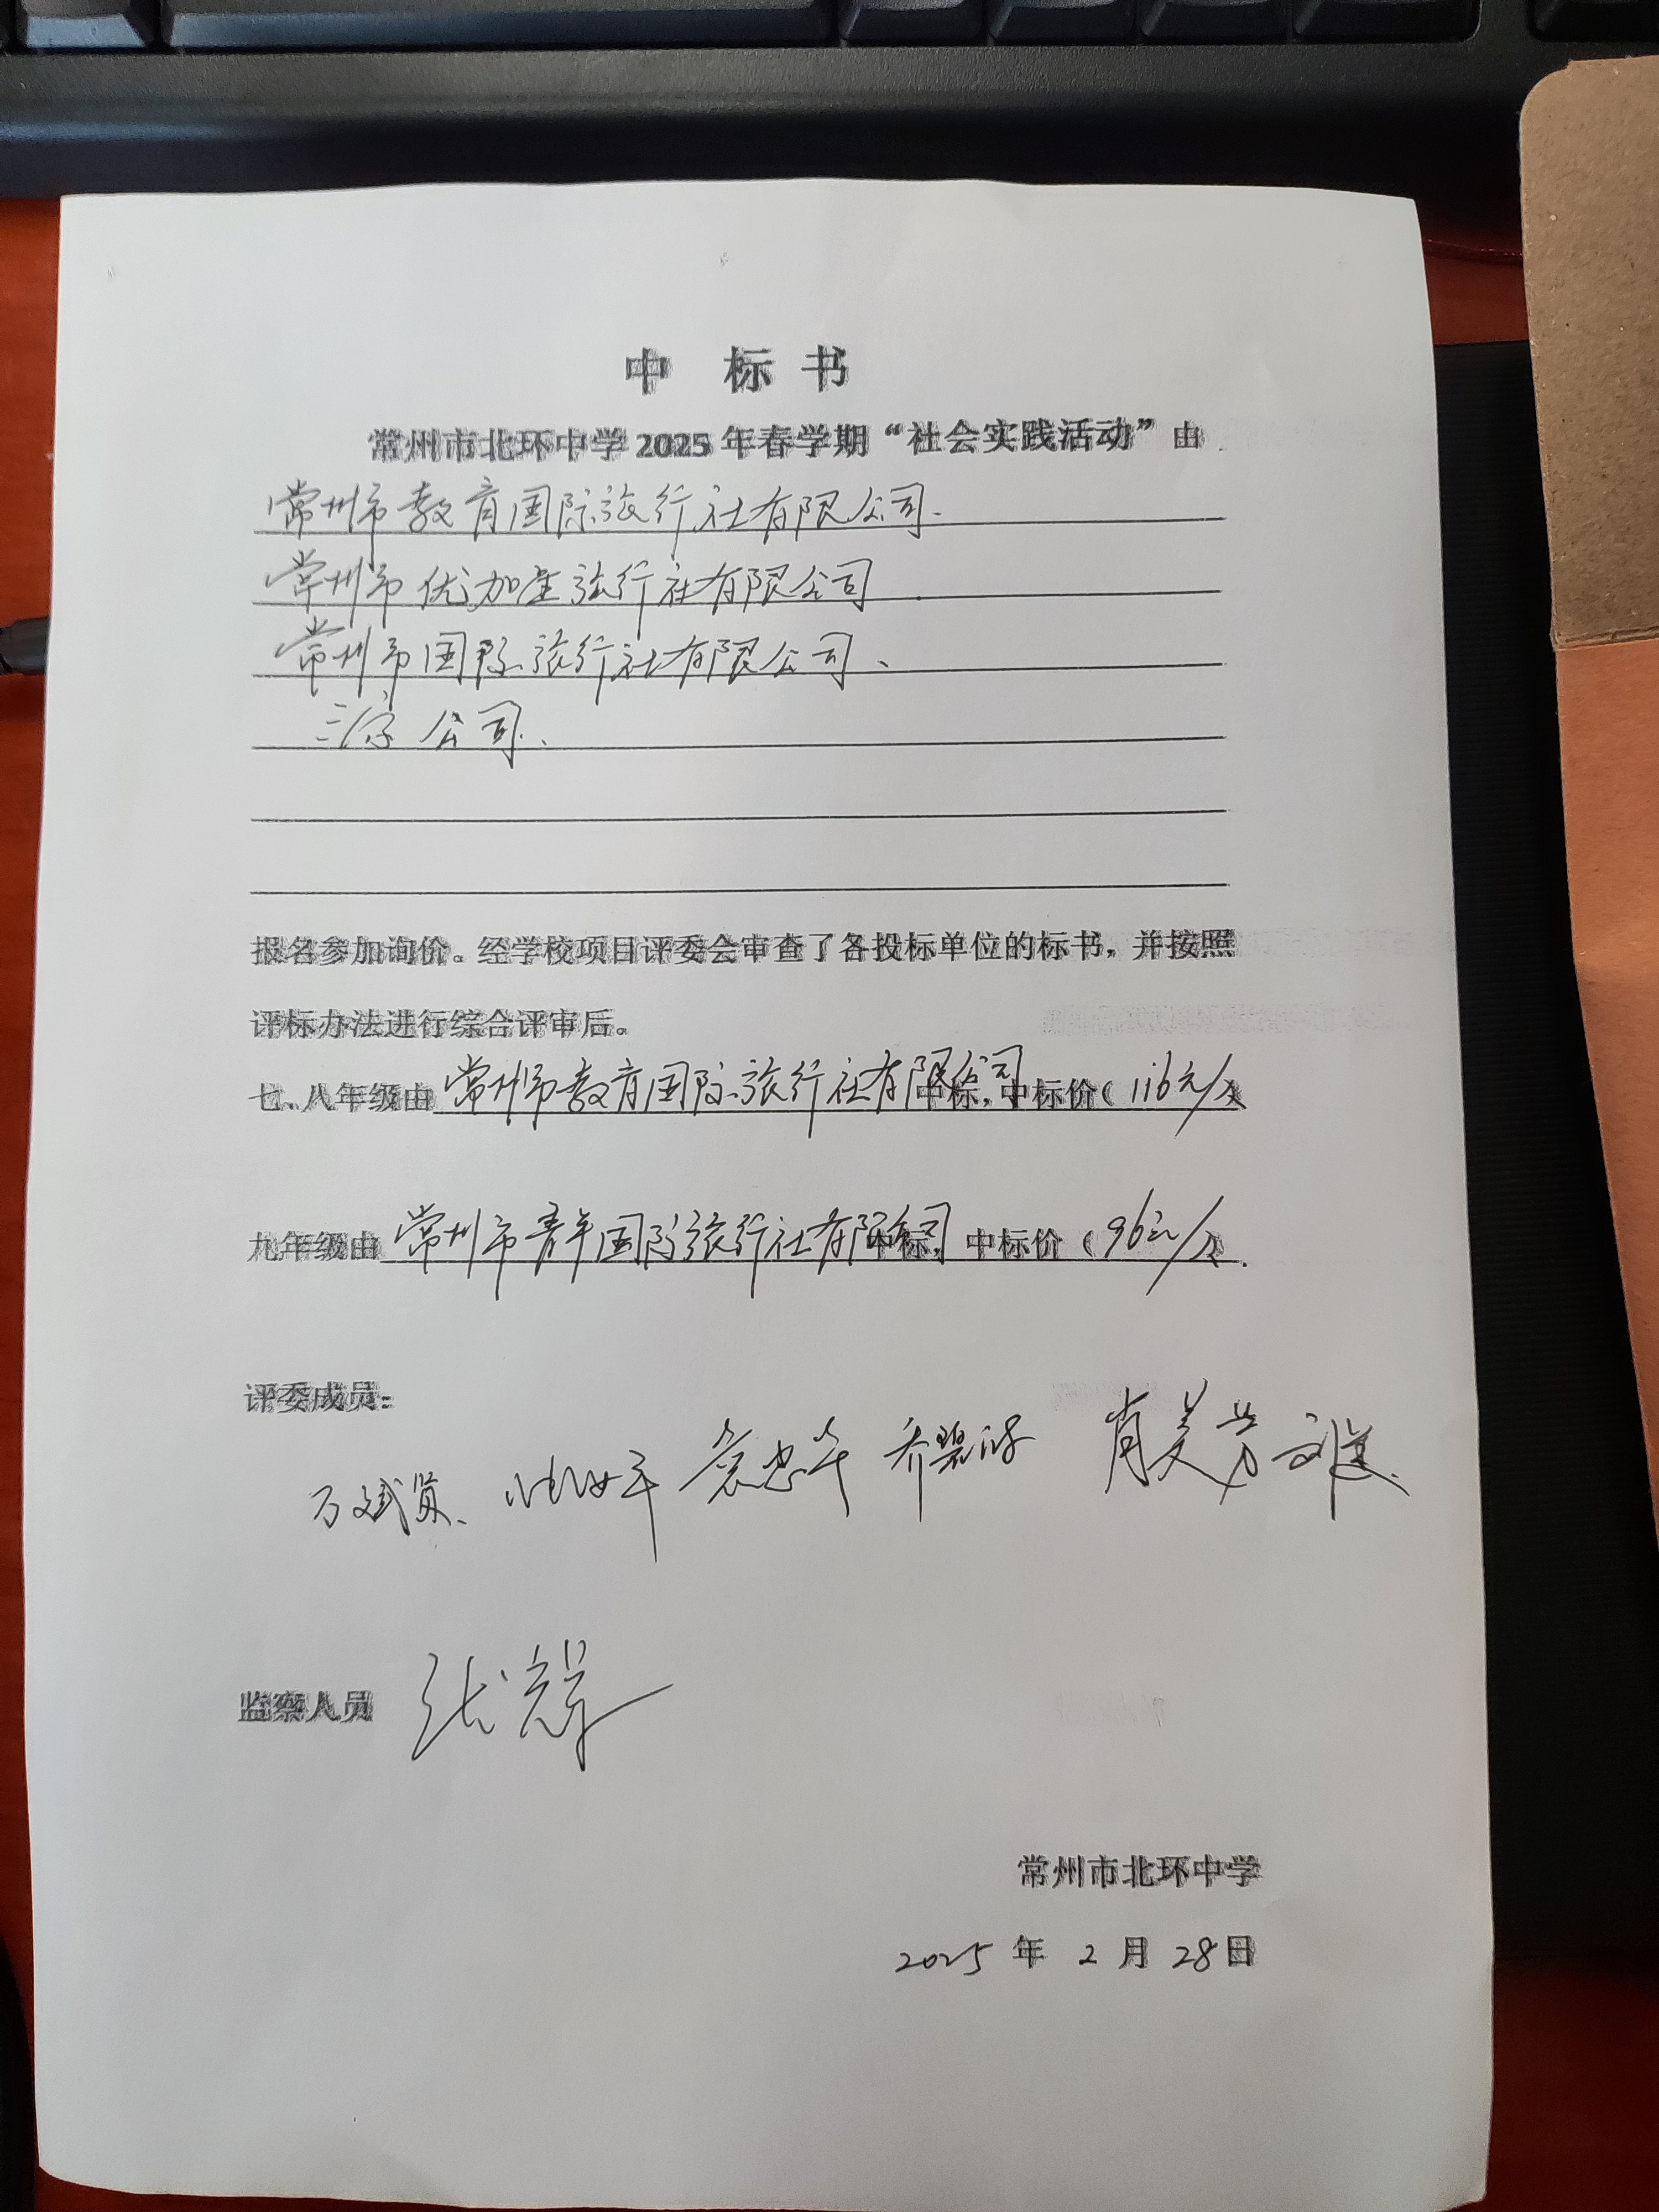 中 标 书
常州市北环中学2025年春学期“社会实践活动”由
常州市教育国际旅行社有限公司、
常州市优加星旅行社有限公司
常州市国际旅行社有限公司、
公司、
报名参加询价。经学校项目评委会审查了各投标单位的标书，并按照
评标办法进行综合评审后。
七、八年级由常州市教育国际旅行社有限公司中标，中标价（116元/人）
九年级由常州市青年国际旅行社有限公司中标，中标价（96元/人）.
评委成员：
万斌贤、 袁忠平 乔碧波 肖美芳
监察人员
常州市北环中学
2025 年 2 月 28日